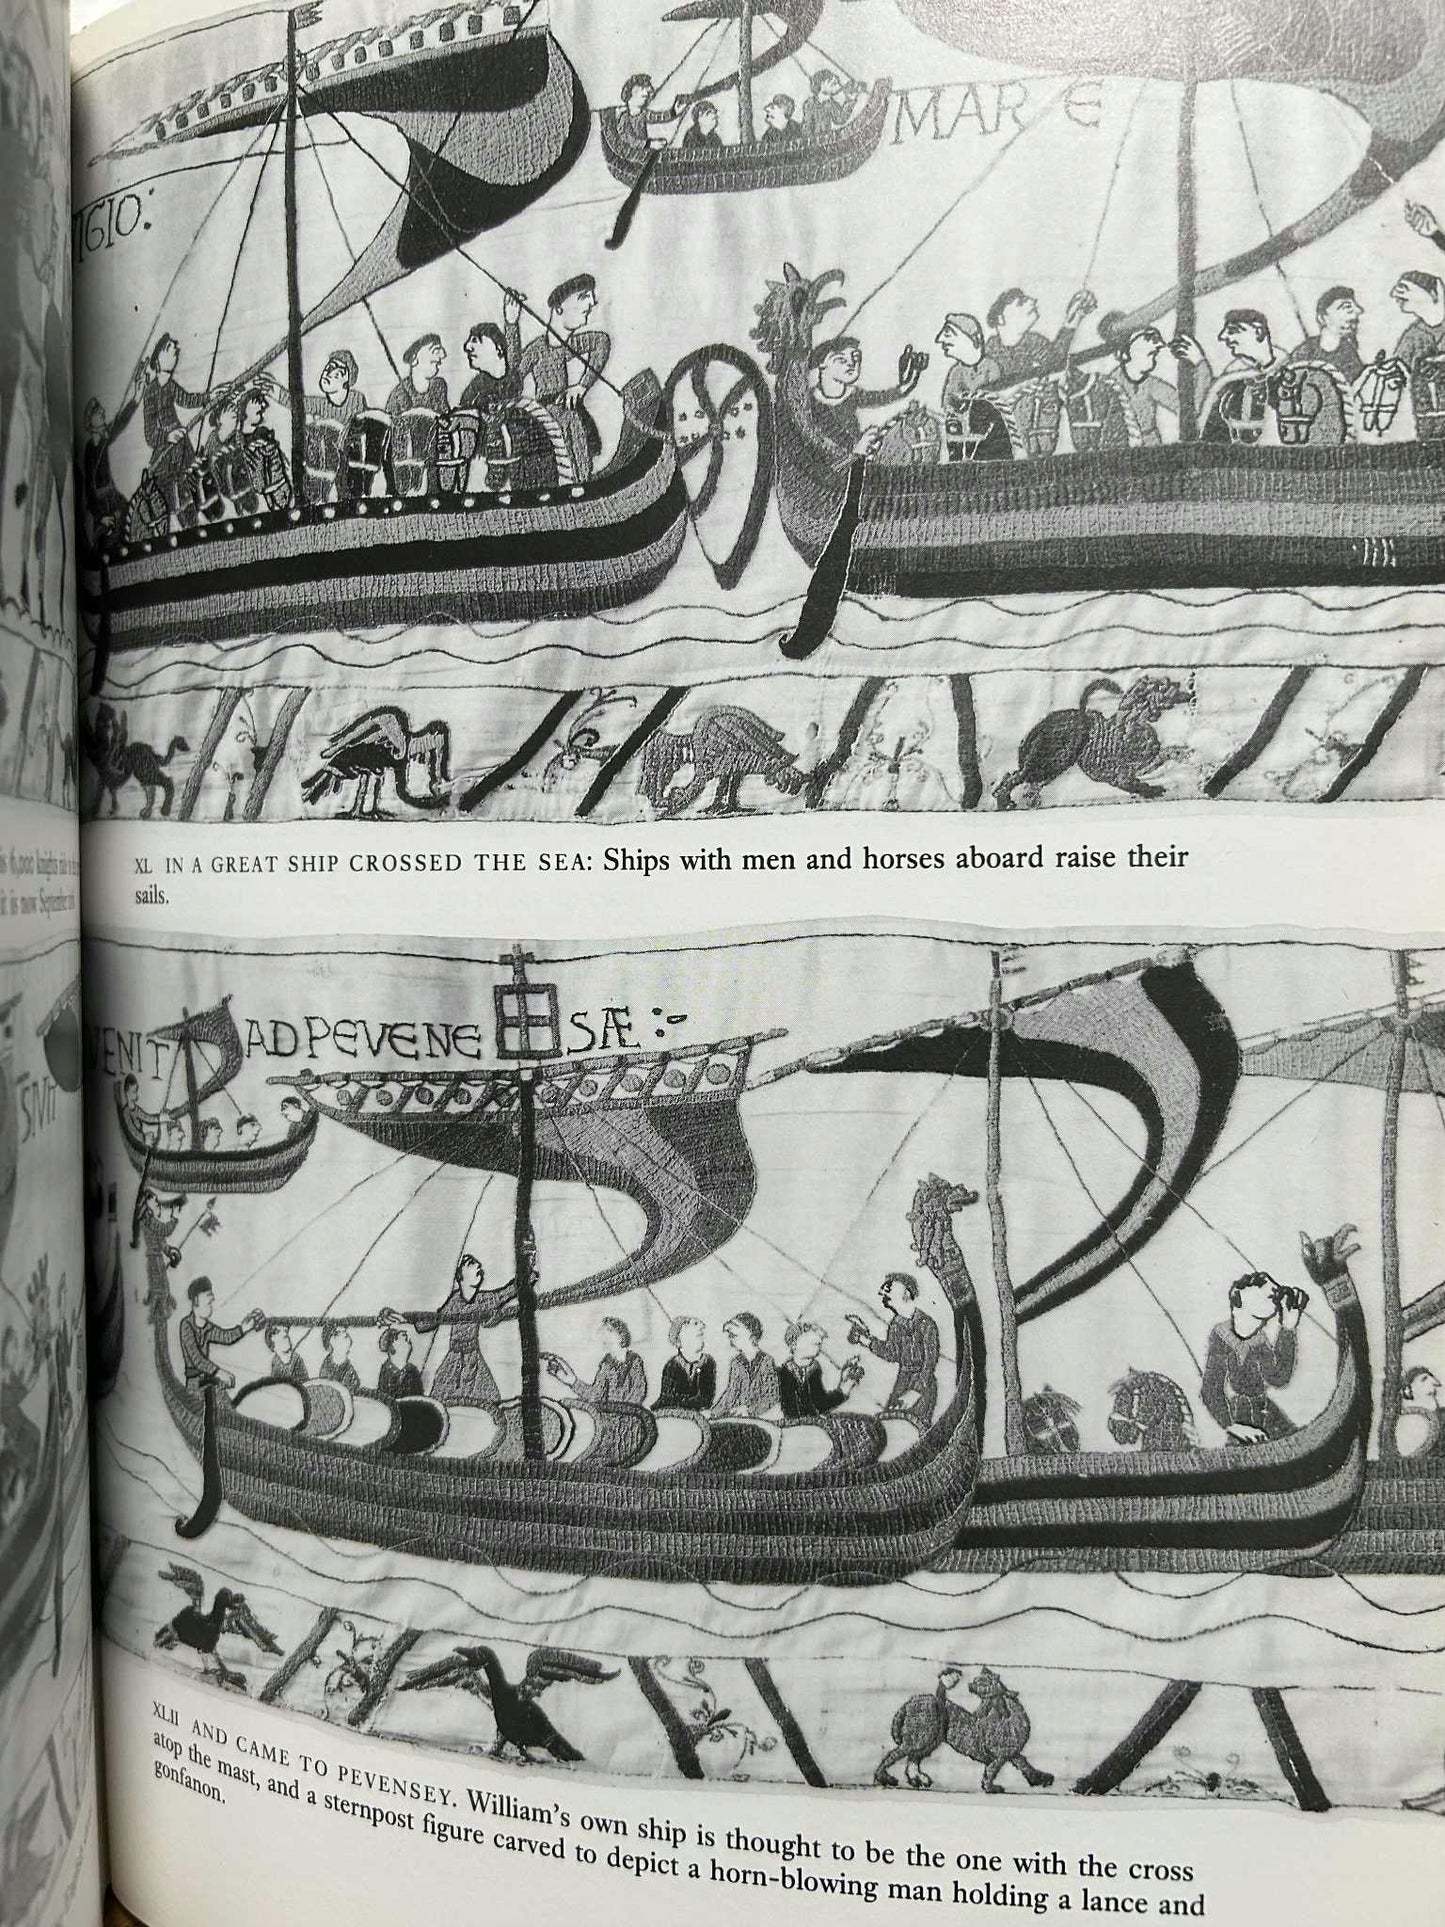 MARE
IGIO:
XL IN A GREAT SHIP CROSSED THE SEA: Ships with men and horses aboard raise their
sails.
is 6,000 knights
it is now September
ENIT AD PEVENE SÆ :-
XLII AND CAME TO PEVENSEY. William's own ship is thought to be the one with the cross
atop the mast, and a sternpost figure carved to depict a horn-blowing man holding a lance and
gonfanon.